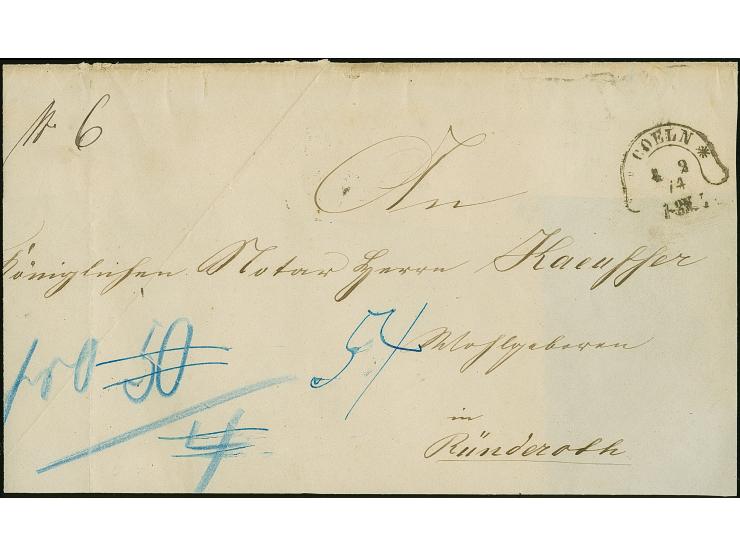 No 6
COELN *
4 2
74
An
Königlichen Notar Herrn Kaeuffer
Wohlgeboren
in
Ründeroth
50
54
4